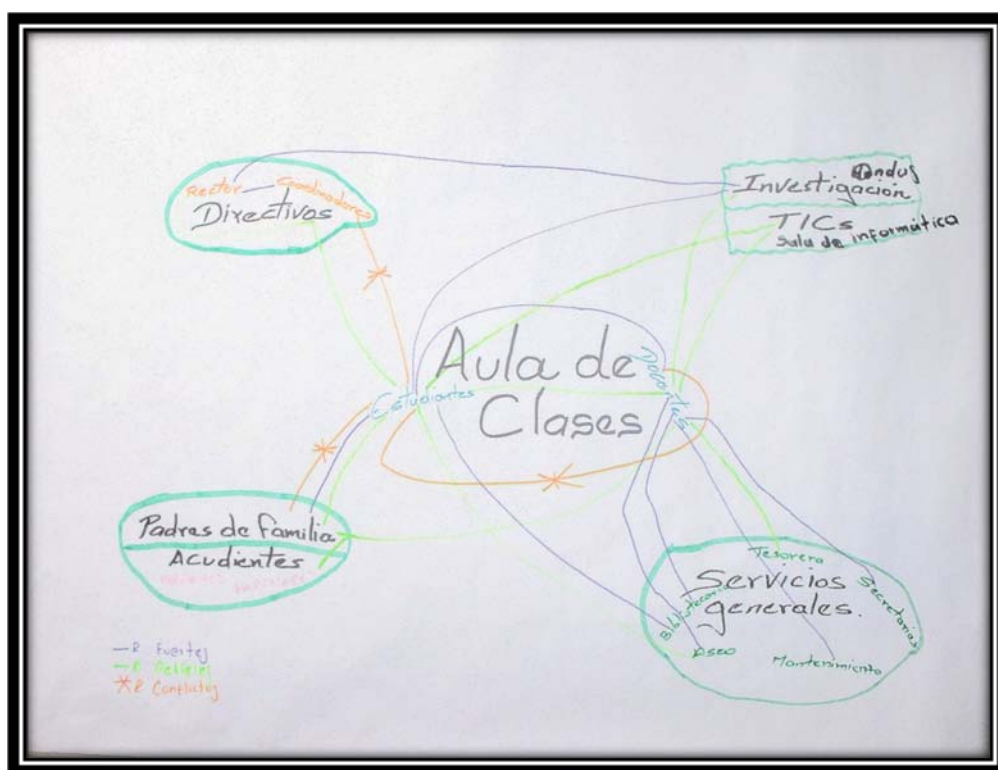 Rector - Coordinadores
Directivos
Ondas
Investigación
TICs
Sala de informática
Aula de
Clases
Estudiantes
Docentes
Padres de familia
Acudientes
Tesorera
Servicios
generales.
Bibliotecario
Secretarias
Aseo
Mantenimiento
R Fuertes
R Débiles
R Conflictos